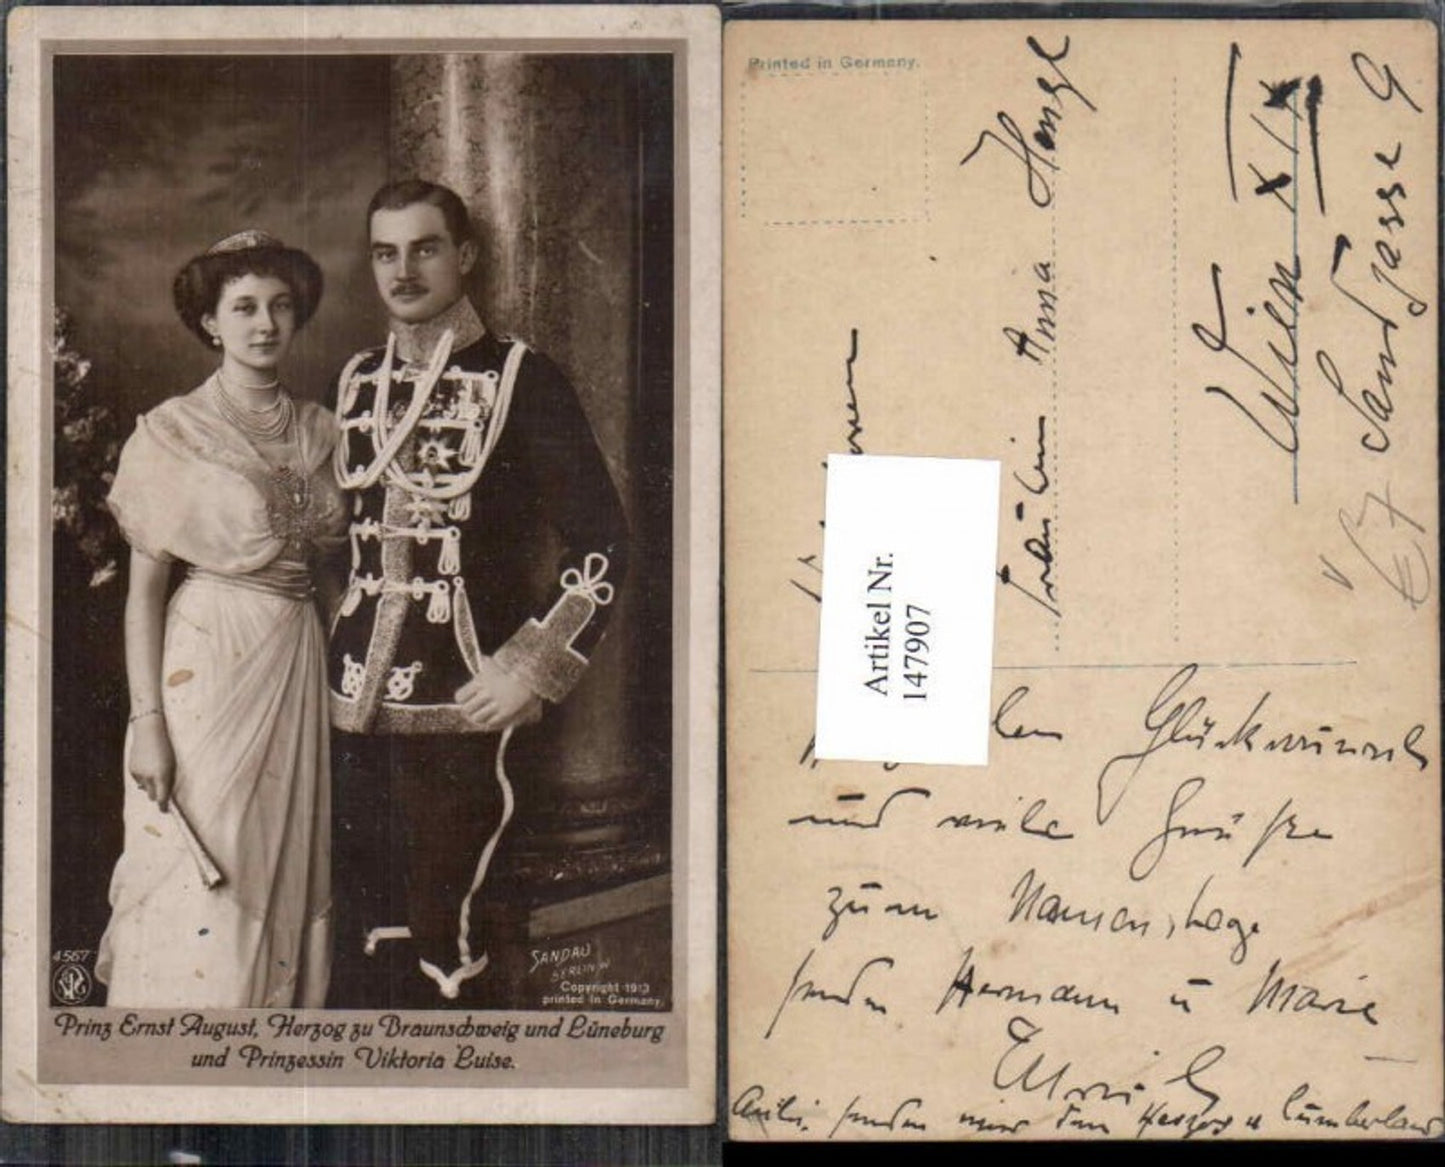 4567
SANDAU
BERLIN W
Copyright 1913
printed in Germany.
Prinz Ernst August, Herzog zu Braunschweig und Lüneburg
und Prinzessin Viktoria Luise.
Printed in Germany.
Fräulein Anna Hengl
Wien XIX
Sandgasse 9
Artikel Nr.
147907
Glückwunsch
und viele Grüße
zum Namenstage
senden Hermann u Maria
senden wir den Herzog u Cumberland